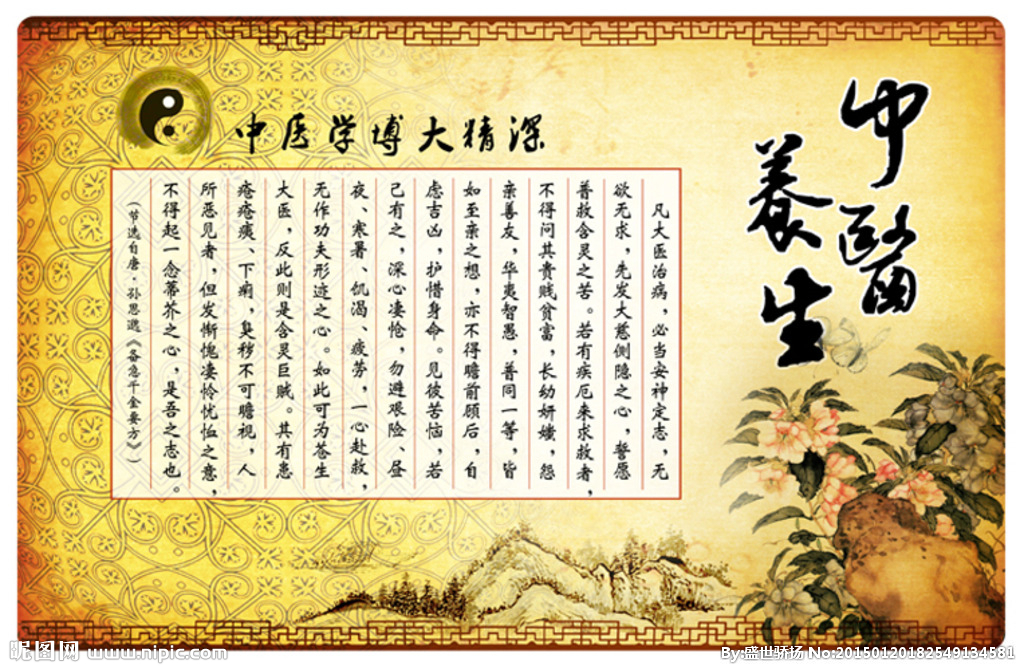 中醫
養生
中医学博大精深
凡大医治病，必当安神定志，无
欲无求，先发大慈恻隐之心，誓愿
普救含灵之苦。若有疾厄来求救者，
不得问其贵贱贫富，长幼妍媸，怨
亲善友，华夷智愚，普同一等，皆
如至亲之想，亦不得瞻前顾后，自
虑吉凶，护惜身命。见彼苦恼，若
己有之，深心凄怆，勿避艰险、昼
夜、寒暑、饥渴、疲劳，一心赴救，
无作功夫形迹之心。如此可为苍生
大医，反此则是含灵巨贼。其有患
疮痍、下痢，臭秽不可瞻视，人
所恶见者，但发惭愧凄怜忧恤之意，
不得起一念蒂芥之心，是吾之志也。
（节选自唐·孙思邈《备急千金要方》）
昵图网 www.nipic.com
By:盛世骄扬 No:20150120182549134581